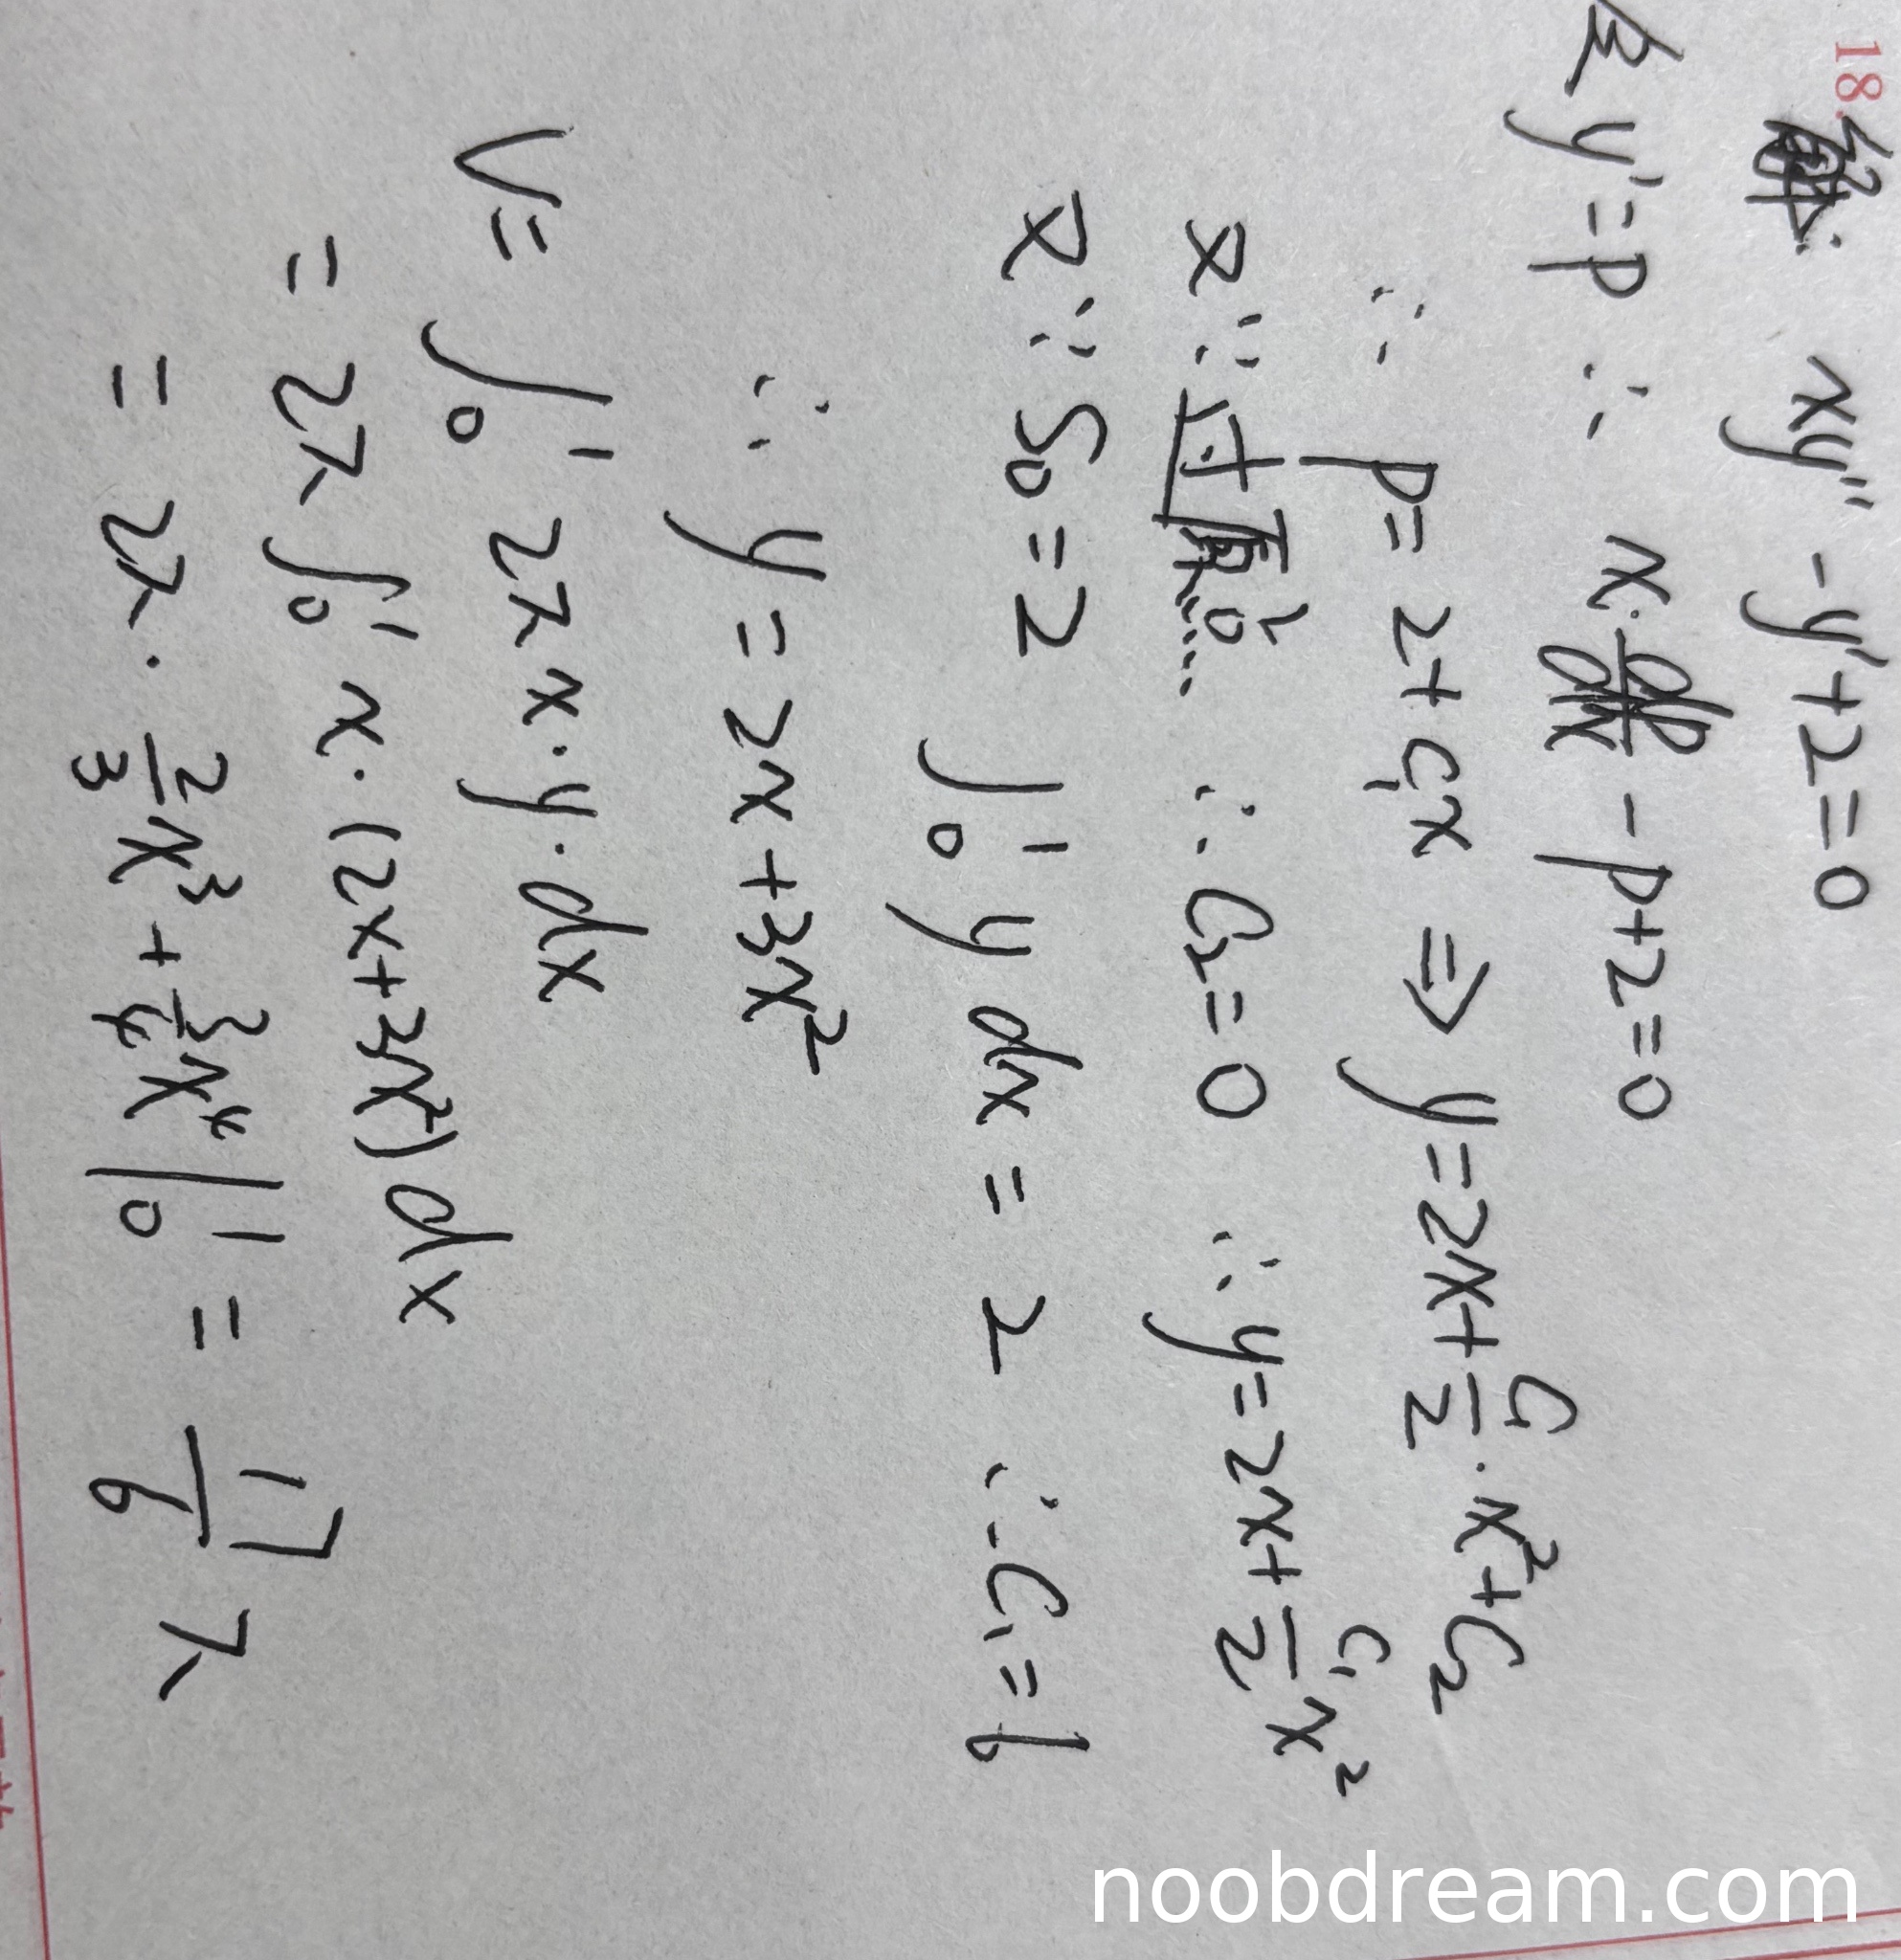 18. 解: xy″ - y′ + 2 = 0
令 y′ = p ∴ x · dp/dx - p + 2 = 0
∴ p = 2 + C₁x ⇒ y = 2x + C₁/2 · x² + C₂
又∵ 过原点 ∴ C₂ = 0 ∴ y = 2x + C₁/2 x²
又∵ S_D = 2 ∫₀¹ y dx = 2 ∴ C₁ = 6
∴ y = 2x + 3x²
V = ∫₀¹ 2π x · y · dx
= 2π ∫₀¹ x · (2x + 3x²) dx
= 2π · 2/3 x³ + 3/4 x⁴ |₀¹ = 17/6 π
noobdream.com